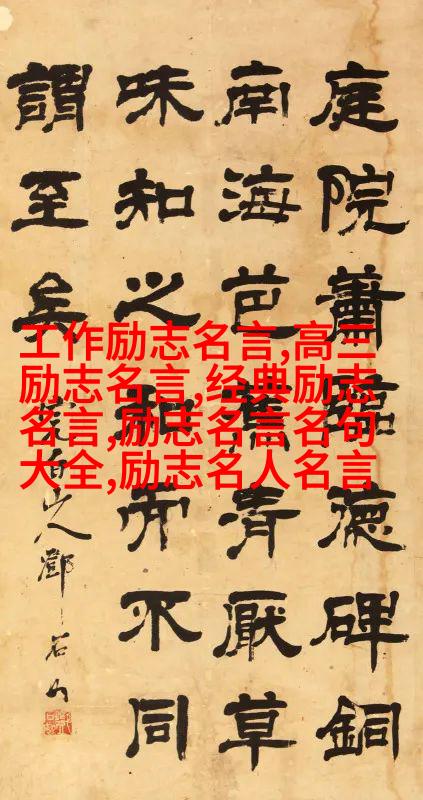 庭院蕭臨德碑銅
南海芭蕉厭草
味知之和而不同
謂至矣
完白山人鄧石如
工作励志名言,高三
励志名言,经典励志
名言,励志名言名句
大全,励志名人名言